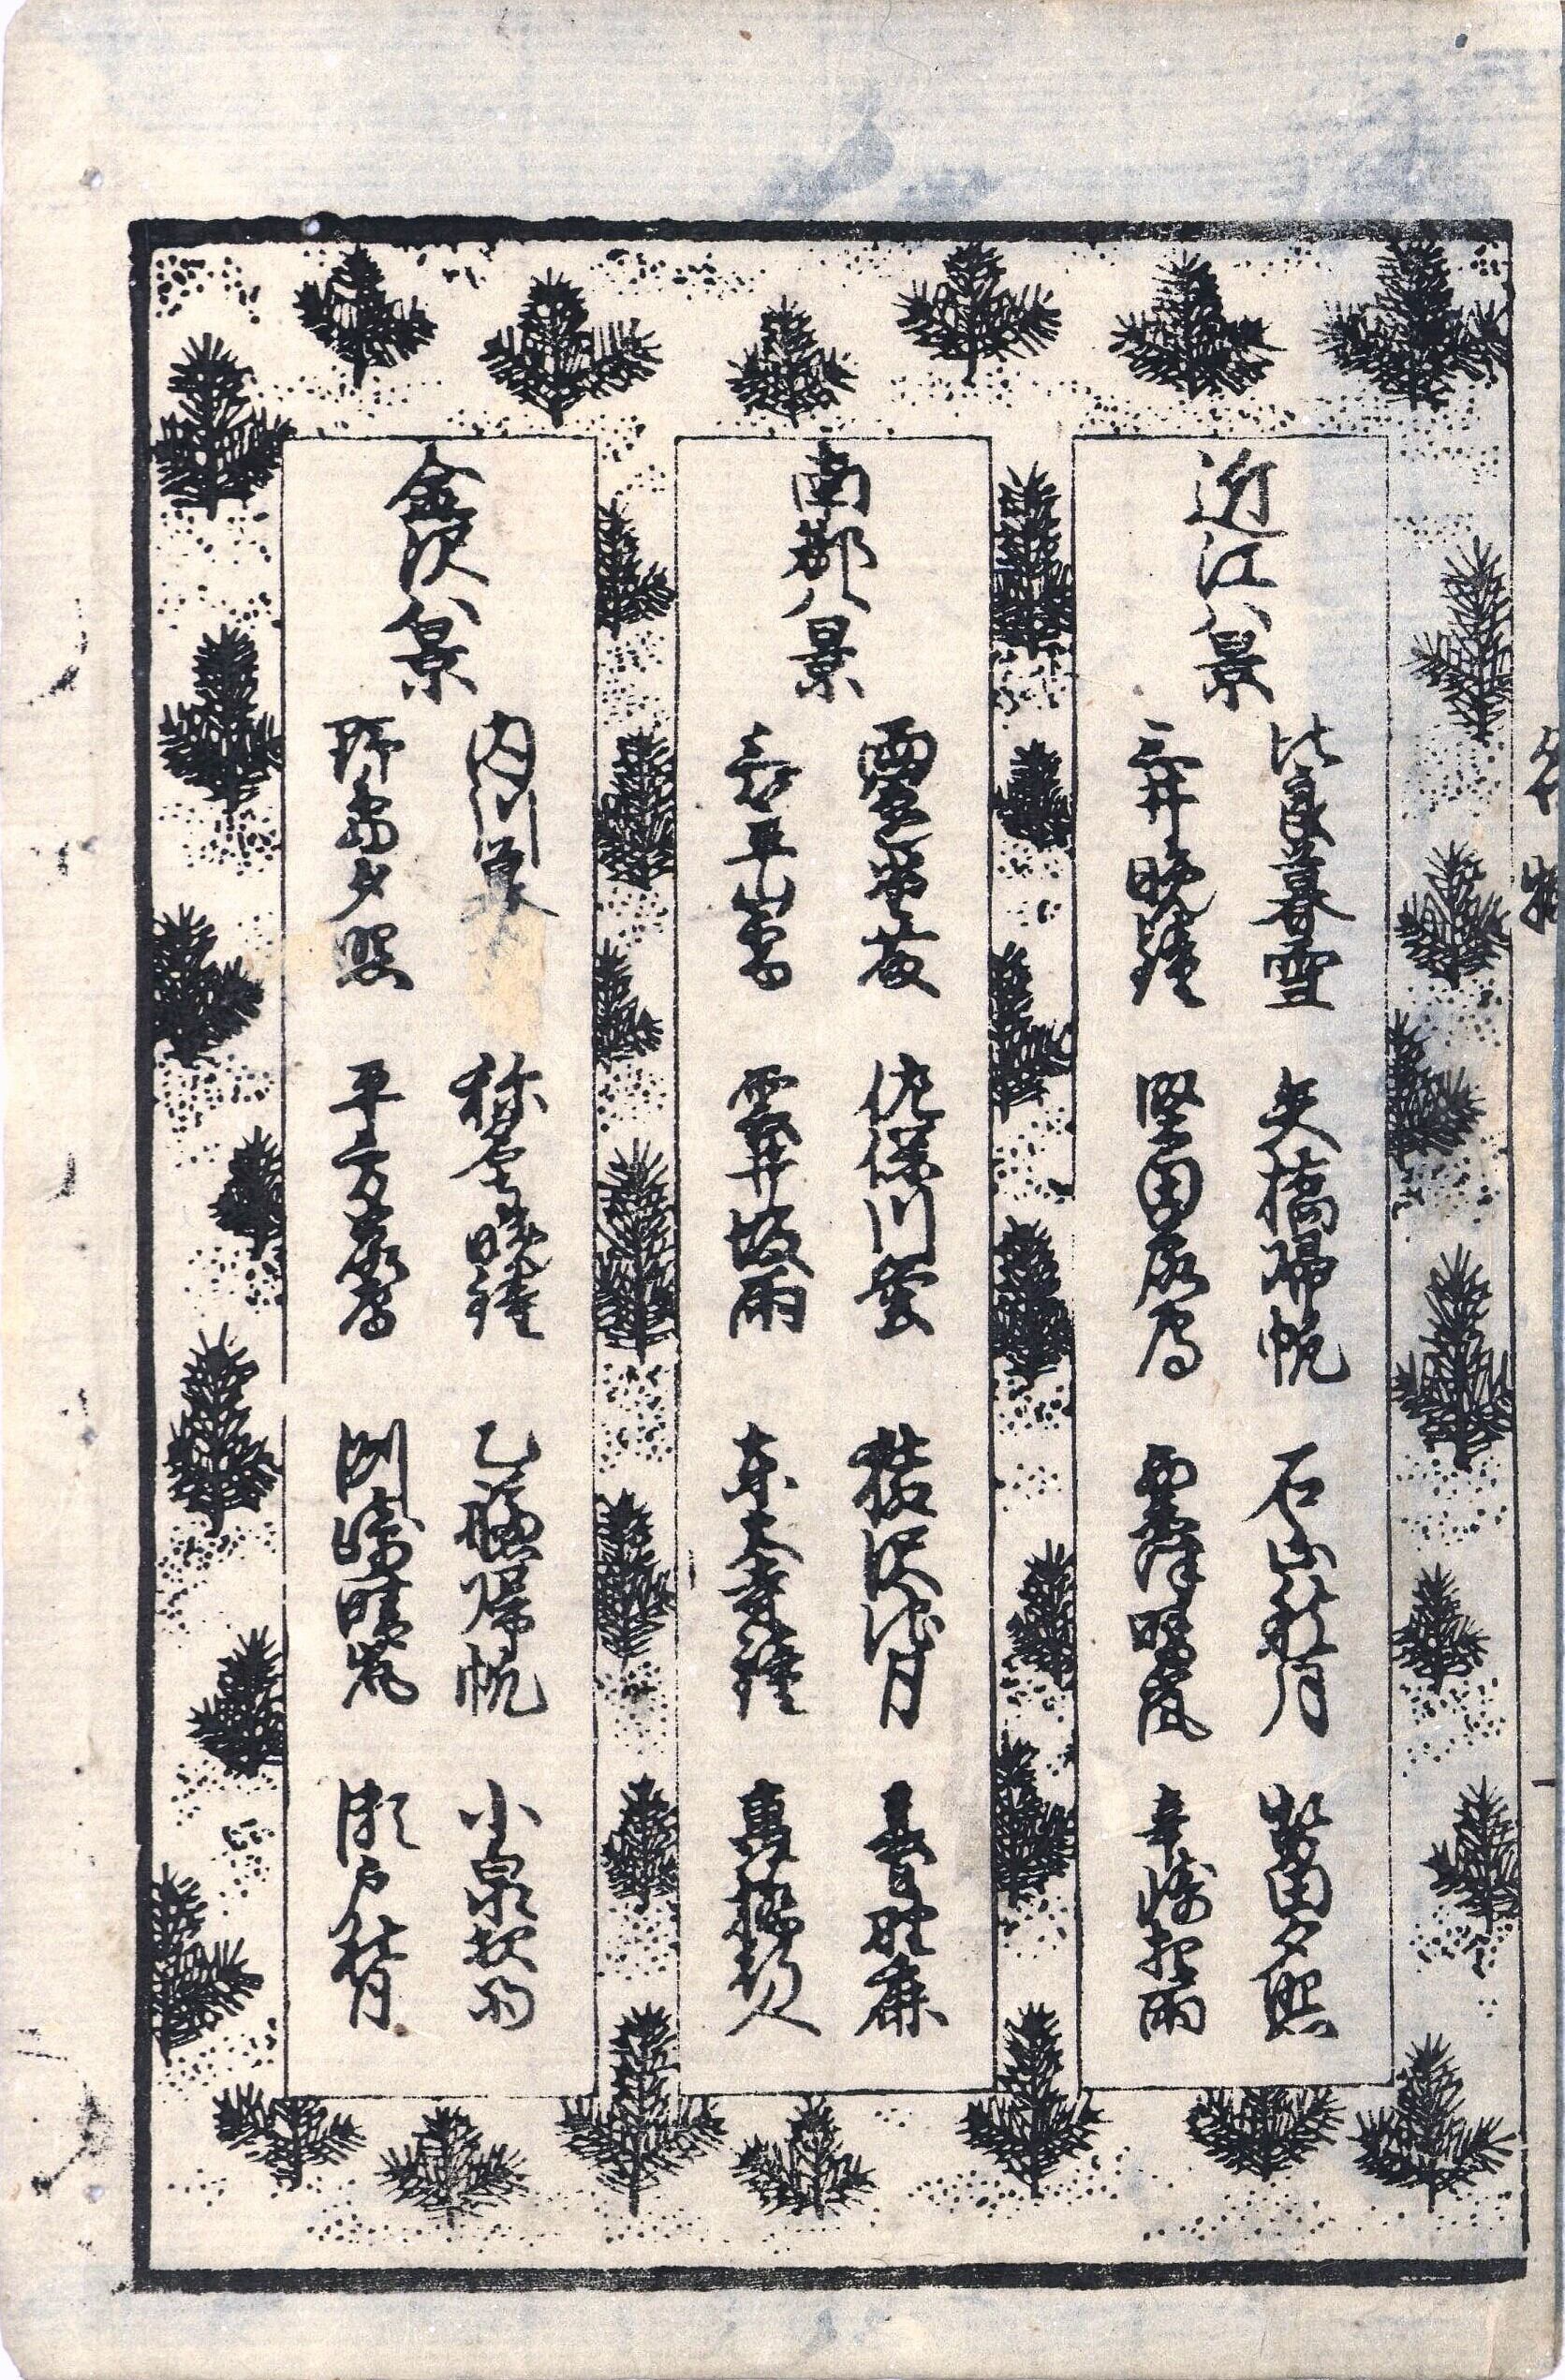 近江八景
比良暮雪 矢橋帰帆 石山秋月 勢田夕照
三井晩鐘 堅田落雁 粟津晴嵐 辛崎夜雨
南都八景
南円堂藤 佐保川蛍 猿沢池月 春日野鹿
三笠山雪 雲井坂雨 東大寺鐘 轟橋旅人
金沢八景
内川暮 称名寺晩鐘 乙艫帰帆 小泉夜雨
野島夕照 平方落雁 洲崎晴嵐 瀬戸秋月